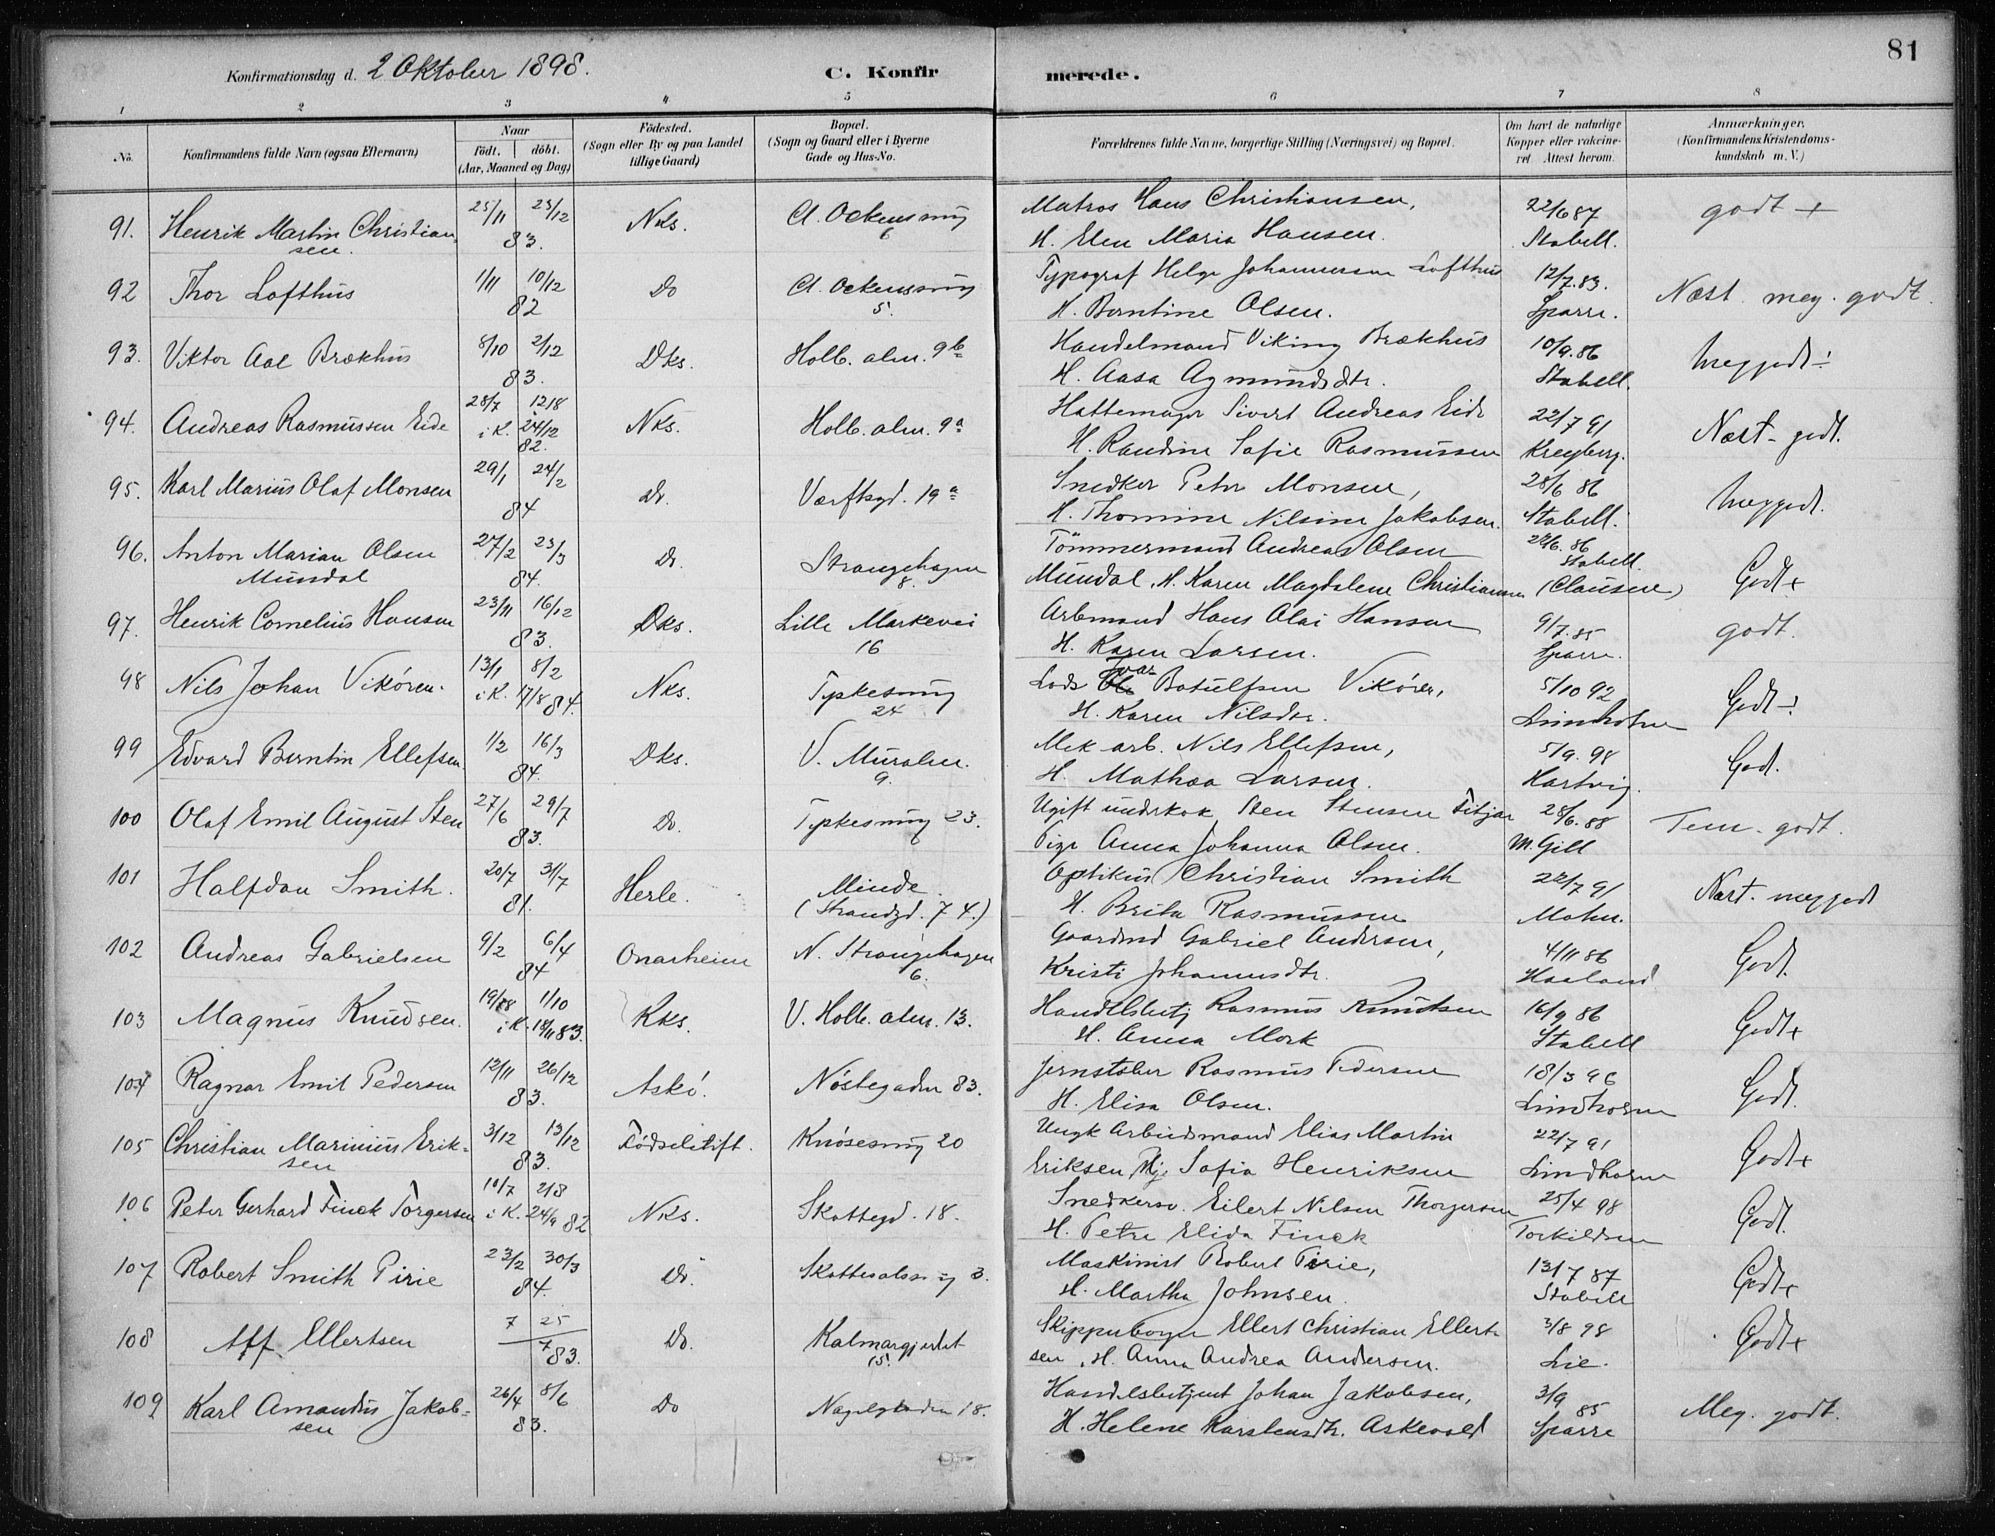 81
Konfirmationsdag d. 2 Oktober 1898.
C. Konfir merede.
1 2 3 4 5 6 7 8
No. Konfirmandens fulde Navn (ogsaa Efternavn)
Naar født. døbt. (Aar, Maaned og Dag)
Födested. (Sogn eller By og paa Landet tillige Gaard)
Bopæl. (Sogn og Gaard eller i Byerne Gade og Hus-No.
Forældrenes fulde Navne, borgerlige Stilling (Næringsvei) og Bopæl.
Om havt de naturlige Kopper eller vakcineret Attest herom.
Anmærkninger. (Konfirmandens Kristendomskundskab m. V.)
91. Henrik Martin Christian- 25/11 23/12 Nks. Cl. Ockensmug Matros Hans Christiansen, 22/6 87 godt +
sen. 83. 6 H. Elen Maria Hansen. Stabell.
92 Thor Lofthus 1/11 10/12 Do Cl. Ockensmug Typograf Helge Johannessen Lofthus 12/7.83. Næst. meg. godt.
82 5. H. Berntine Olsen. Sparre.
93. Viktor Aal Brækhus 8/10 2/12 Dks. Holb. alm. 9b Handelmand Viking Brækhus 10/9.86 meggodt ÷
83. H. Aasa Agmundsdtr. Stabell.
94. Andreas Rasmussen Eide 28/7 12/8 Nks. Holb. alm. 9a Hattemager Sivert Andreas Eide 22/7 91 Næst. godt.
i K. 24/12 82. H. Randine Sofie Rasmussen Kreyberg.
95. Karl Marius Olaf Monsen 29/1 24/2 Do. Værftsgd. 19a Snedker Peter Monsen, 28/6 86 meggodt.
84 H. Thomine Nilsine Jakobsen. Stabell.
96. Anton Marian Olsen 27/2 23/3 Do. Strangehagen Tömmermand Andreas Olsen 22/6.86 Stabell. Godt+
Mundal 84. 8. Mundal, H. Karen Magdalene Christiansen (Clausen)
97. Henrik Cornelius Hansen 23/11 16/12 Dks. Lille Markevei Arbmand Hans Olai Hansen 9/7.85 godt.
83. 16 H. Karen Larsen. Sparre.
98 Nils Johan Vikören. 13/1 8/2 Nks. Typkesmug Lods Ivar Botulfsen Vikören, 5/10 92 Godt ÷
i K. 17/8 84. 24 H. Karen Nilsdtr. Lindholm
99 Edvard Berntin Ellefsen 1/2 16/3 Dks. V. Muralm. Mek arb. Nils Ellefsen, 5/9.98 Godt.
84. 9. H. Mathea Larsen. Hartvig.
100 Olaf Emil August Sten 27/6 29/7 Do. Typkesmug 23. Ugift underkok Sten Stensen Fitjar 28/6.88 Tem. godt.
83. Pige Anna Johanna Olsen. M. Gill
101 Halfdan Smith. 20/7 31/7 Herle. Minde. Optikus Christian Smith 22/7 91 Næst. meggodt
81. (Strandgd. 74.) H. Brita Rasmussen Mohn.
102 Andreas Gabrielsen 9/2 6/4 Onarheim N. Strangehagen Gaardmd Gabriel Andersen, 4/11 86 Godt.
84 6. Kristi Johannesdtr. Haaland
103 Magnus Knudsen. 19/8 1/10 Kks. V. Holb. alm. 13. Handelsbetj Rasmus Knudsen 16/9 86 Godt+
i K. 18/11 83. H. Anna Mork Stabell
104 Ragnar Emil Pedersen 12/11 26/12 Askö. Nöstegaden 83. Jernstöber Rasmus Pedersen 18/3 96 Godt.
83. H. Elisa Olsen. Lindholm
105 Christian Marinius Erik- 3/12 13/12 Födselstift. Knösesmug 20 Ungk Arbeidsmand Elias Martin 22/7 91 Godt+
sen 83. Eriksen, Pige Sofia Henriksen Lindholm
106 Peter Gerhard Finck Torgersen 10/7 2/8 Nks. Skottegd. 18. Snedkersv. Eilert Nilsen Thorgersen 25/4 98 Godt.
i K. 24/9 82 H. Petra Elida Finck Torkildsen
107 Robert Smith Pirie 23/2 30/3 Do. Skottesalsmug 3. Maskinist Robert Pirie, 13/7 87 Godt+
84. H. Martha Johnsen. Stabell
108 Alf Ellertsen 7 25 Do. Kalmargjerdet Skippuboger Ellert Christian Ellert- 3/8 98 Godt+
7 83. 15. sen, H. Anna Andrea Andersen. Lie.
109 Karl Amandus Jakob- 26/4 8/6 Do Nagelgaarden 18. Handelsbetjent Johan Jakobsen, 3/9 85 Meg. godt.
sen 83. H. Helene Karstensdtr. Askevold Sparre